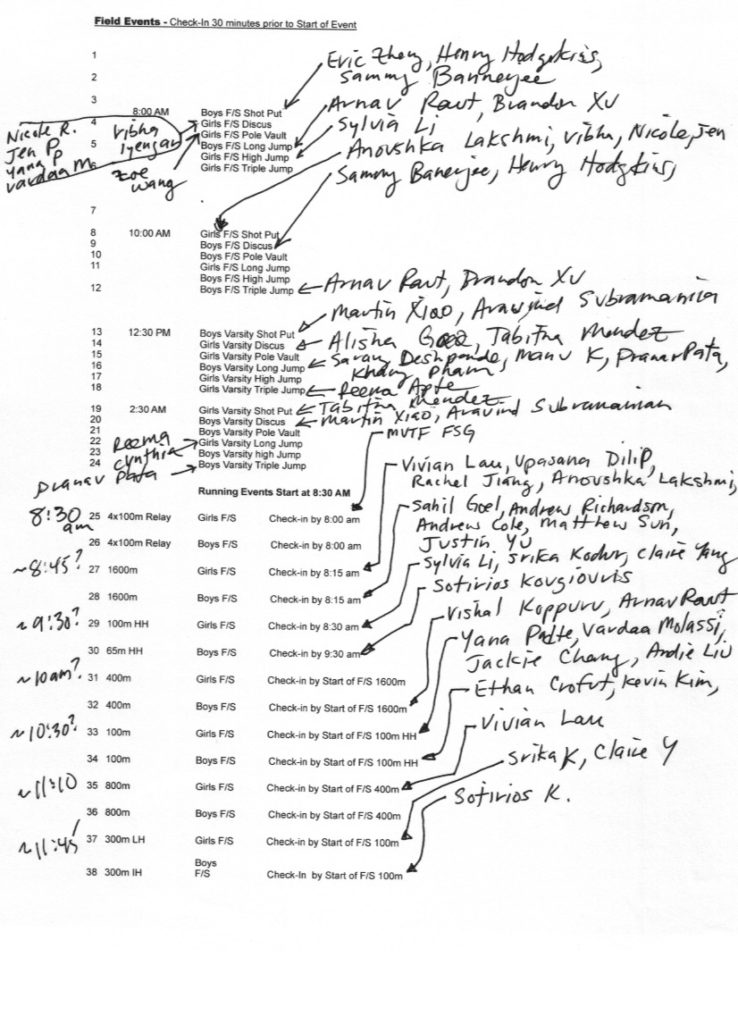 Field Events - Check-In 30 minutes prior to Start of Event
1
Eric Zheng, Henry Hodgekins,
2
Sammy Bannerjee
3
8:00 AM Boys F/S Shot Put
Arnav Raut, Brandon XU
4 Girls F/S Discus
Sylvia Li
Girls F/S Pole Vault
5 Boys F/S Long Jump
Anoushka Lakshmi, Vibha, Nicole, Jen
Girls F/S High Jump
Girls F/S Triple Jump
Sammy Banerjee, Henry Hodgkins,
Nicole R.
Jen P
Yana P
Vardaa M
Vibha
Iyengar
Zoe
Wang
7
8 10:00 AM Girls F/S Shot Put
9 Boys F/S Discus
10 Boys F/S Pole Vault
11 Girls F/S Long Jump
Boys F/S High Jump
12 Boys F/S Triple Jump
Arnav Raut, Brandon XU
Martin Xiao, Aravind Subramanian
13 12:30 PM Boys Varsity Shot Put
14 Girls Varsity Discus
Alisha Goel, Tabitha Mendez
15 Girls Varsity Pole Vault
16 Boys Varsity Long Jump
Sarang Deshpande, Manu K, Pranav Pata,
Khang Pham
17 Girls Varsity High Jump
18 Girls Varsity Triple Jump
Reema Apte
19 2:30 AM Girls Varsity Shot Put
Tabitha Mendez
20 Boys Varsity Discus
Martin Xiao, Aravind Subramanian
21 Boys Varsity Pole Vault
22 Girls Varsity Long Jump
Reema
Cynthia
23 Boys Varsity high Jump
24 Boys Varsity Triple Jump
Pranav Pata
MVTF FSG
Vivian Lau, Upasana Dilip,
Rachel Jiang, Anoushka Lakshmi,
Running Events Start at 8:30 AM
8:30 am
25 4x100m Relay Girls F/S Check-in by 8:00 am
Sahil Goel, Andrew Richardson,
Andrew Cole, Matthew Sun,
Justin Yu
26 4x100m Relay Boys F/S Check-in by 8:00 am
~8:45?
27 1600m Girls F/S Check-in by 8:15 am
Sylvia Li, Srika Kodur, Claire Yang
28 1600m Boys F/S Check-in by 8:15 am
Sotirios Kougiouris
~9:30?
29 100m HH Girls F/S Check-in by 8:30 am
Vishal Koppuru, Arnav Raut
30 65m HH Boys F/S Check-in by 9:30 am
Yana Patte, Vardaa Molassi,
Jackie Chang, Andie Liu
~10am?
31 400m Girls F/S Check-in by Start of F/S 1600m
Ethan Crofut, Kevin Kim,
32 400m Boys F/S Check-in by Start of F/S 1600m
~10:30?
33 100m Girls F/S Check-in by Start of F/S 100m HH
Vivian Lau
34 100m Boys F/S Check-in by Start of F/S 100m HH
Srika K, Claire Y
~11:10
35 800m Girls F/S Check-in by Start of F/S 400m
Sotirios K.
36 800m Boys F/S Check-in by Start of F/S 400m
~11:45
37 300m LH Girls F/S Check-in by Start of F/S 100m
38 300m IH Boys F/S Check-In by Start of F/S 100m